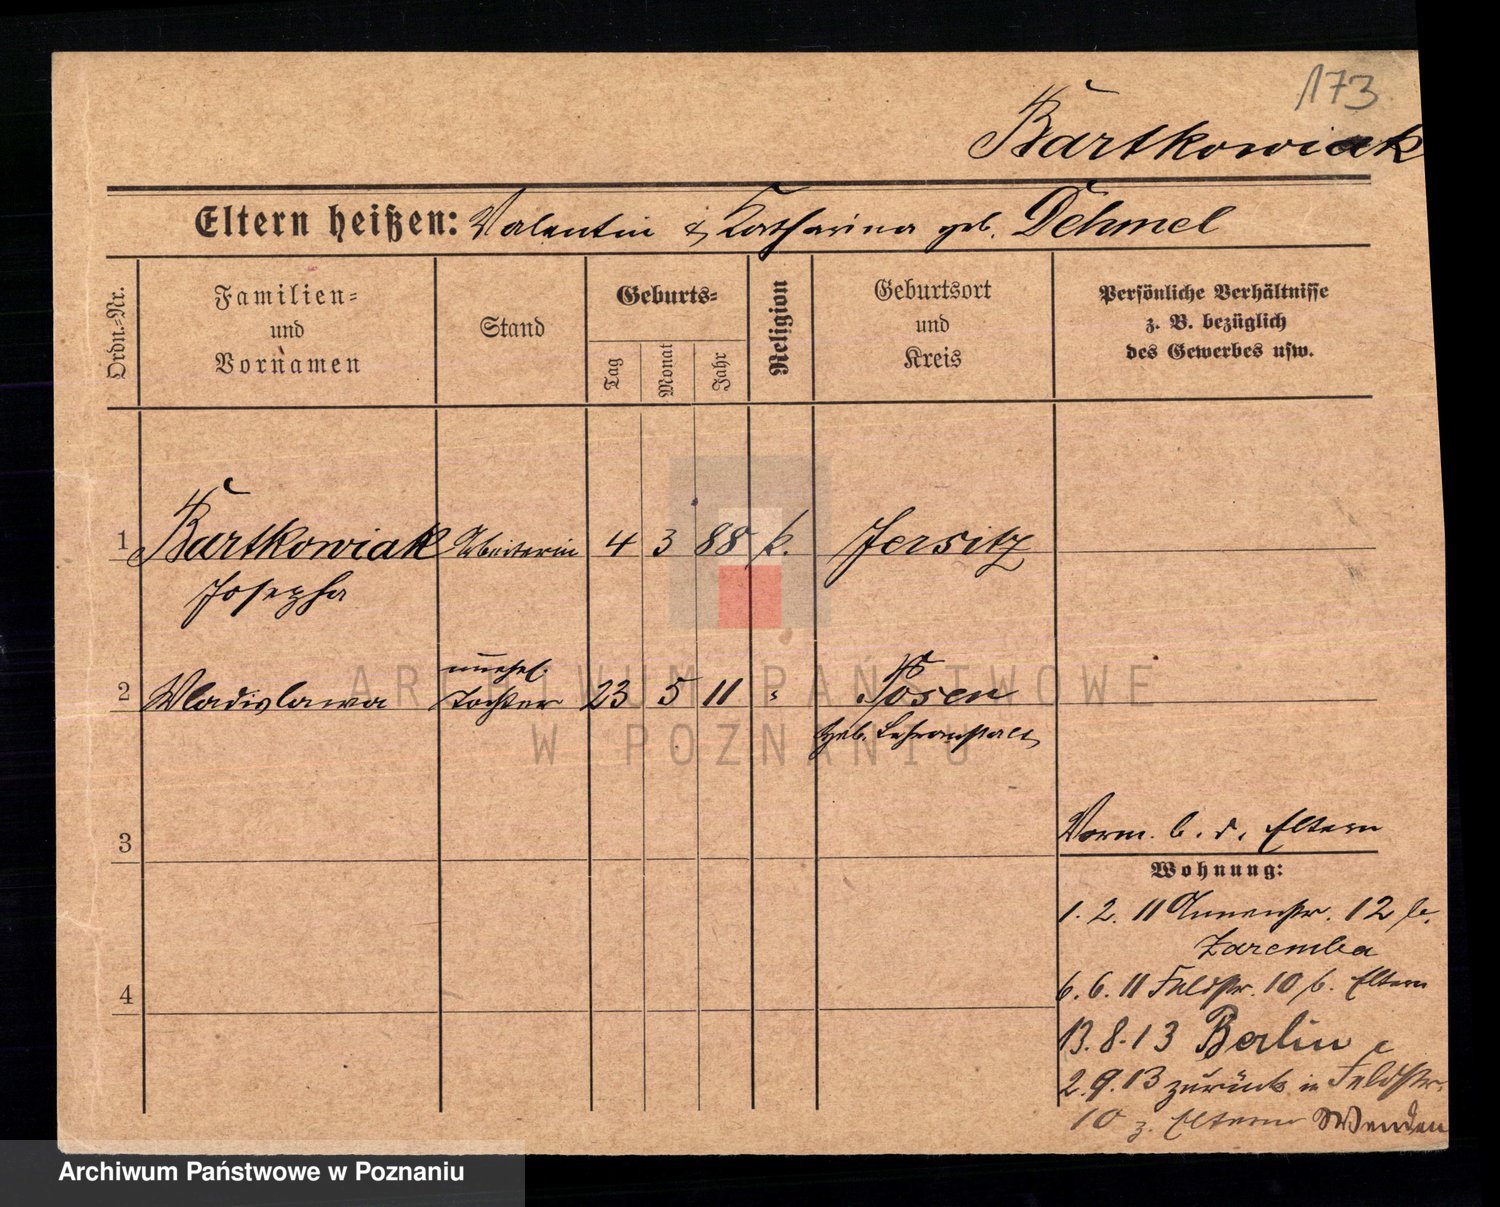 173
Bartkowiak
Eltern heißen: Valentin & Katharina geb. Dehmel
Ordn.-Nr.
Familien- und Vornamen
Stand
Geburts-
Tag
Monat
Jahr
Religion
Geburtsort und Kreis
Persönliche Verhältnisse z. B. bezüglich des Gewerbes usw.
1 Bartkowiak Arbeiterin 4 3 88 k. Jersitz
Josepha
unehel.
2 Wladislawa Tochter 23 5 11 " Posen
Heb. Lehranstalt
3
4
Vorm. b. d. Eltern
Wohnung:
1. 2. 11 Annenstr. 12 b.
Zaremba
6. 6. 11 Feldstr. 10 b. Eltern
13. 8. 13 Berlin
2. 9. 13 zurück in Feldstr.
10 z. Eltern Wenden
ARCHIWUM PAŃSTWOWE
W POZNANIU
Archiwum Państwowe w Poznaniu